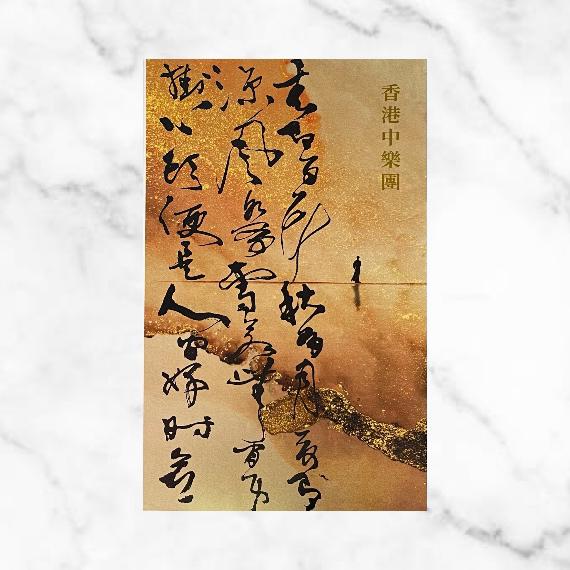 香港中樂團
春有百花秋有月夏有
涼風冬有雪若無閒事
掛心頭便是人間好時節